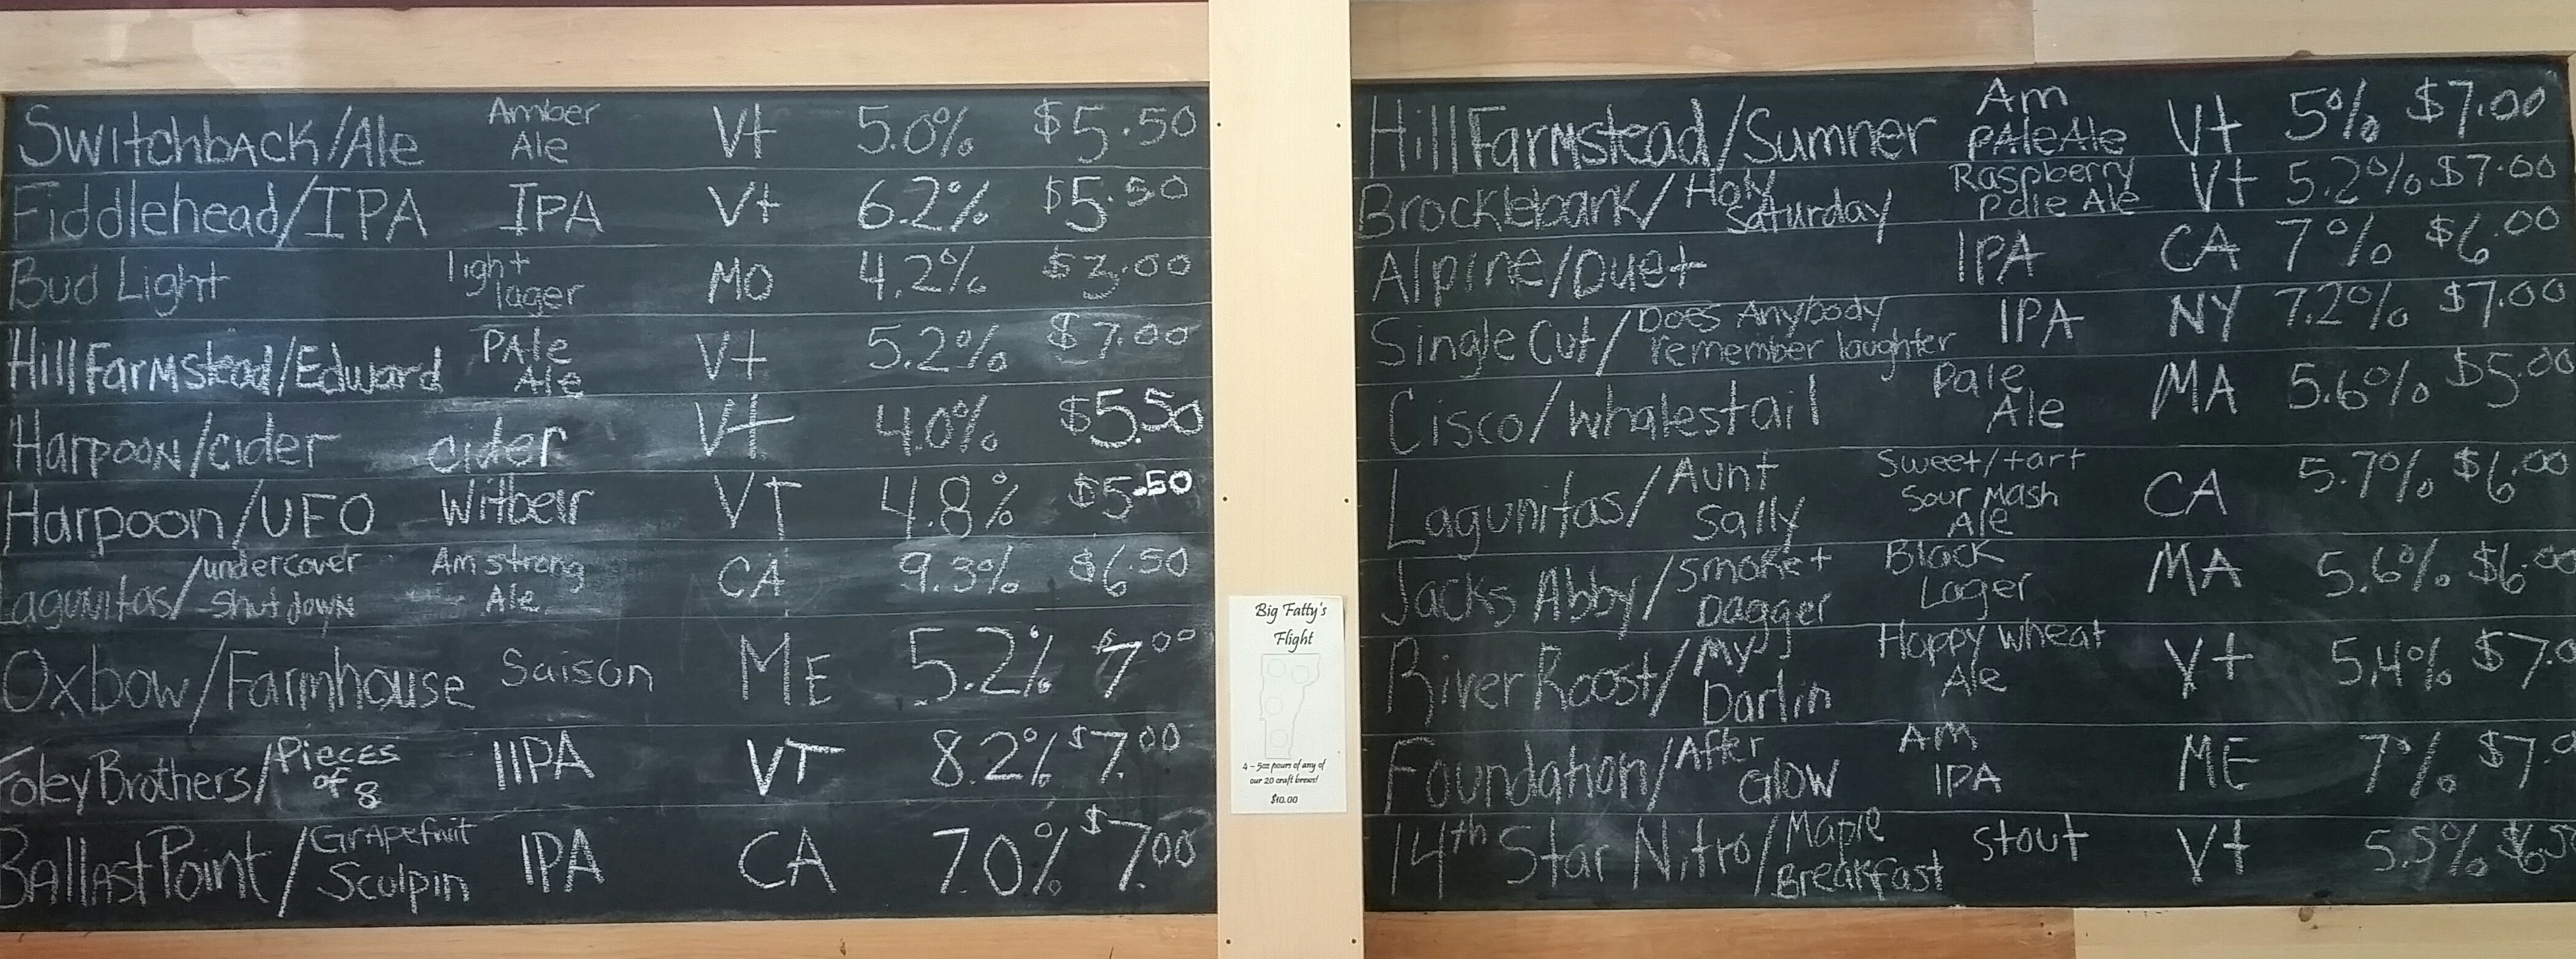 Switchback/Ale Amber Ale Vt 5.0% $5.50
Fiddlehead/IPA IPA Vt 6.2% $5.50
Bud Light light lager MO 4.2% $3.00
Hill Farmstead/Edward Pale Ale Vt 5.2% $7.00
Harpoon/cider cider Vt 4.0% $5.50
Harpoon/UFO Witbeir VT 4.8% $5.50
Lagunitas/undercover shut down Am strong Ale CA 9.3% $6.50
Oxbow/Farmhouse Saison ME 5.2% $7.00
Foley Brothers/Pieces of 8 IIPA VT 8.2% $7.00
Ballast Point/Grapefruit Sculpin IPA CA 7.0% $7.00
Big Fatty's
Flight
4 - 5oz pours of any of
our 20 craft brews!
$10.00
Hill Farmstead/Sumner Am Pale Ale Vt 5% $7.00
Brocklebank/Holy Saturday Raspberry Pale Ale Vt 5.2% $7.00
Alpine/Duet IPA CA 7% $6.00
Single Cut/Does Anybody remember laughter IPA NY 7.2% $7.00
Cisco/whalestail Pale Ale MA 5.6% $5.00
Lagunitas/Aunt Sally Sweet/tart Sour Mash Ale CA 5.7% $6.00
Jacks Abby/Smoke + Dagger Black Lager MA 5.6% $6.00
River Roost/My Darlin Hoppy wheat Ale Vt 5.4% $7.0
Foundation/After Glow Am IPA ME 7% $7.0
14th Star Nitro/Maple Breakfast stout Vt 5.5% $6.50